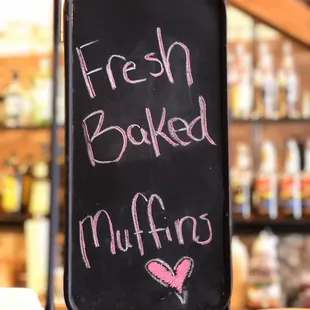 Fresh
Baked
Muffins